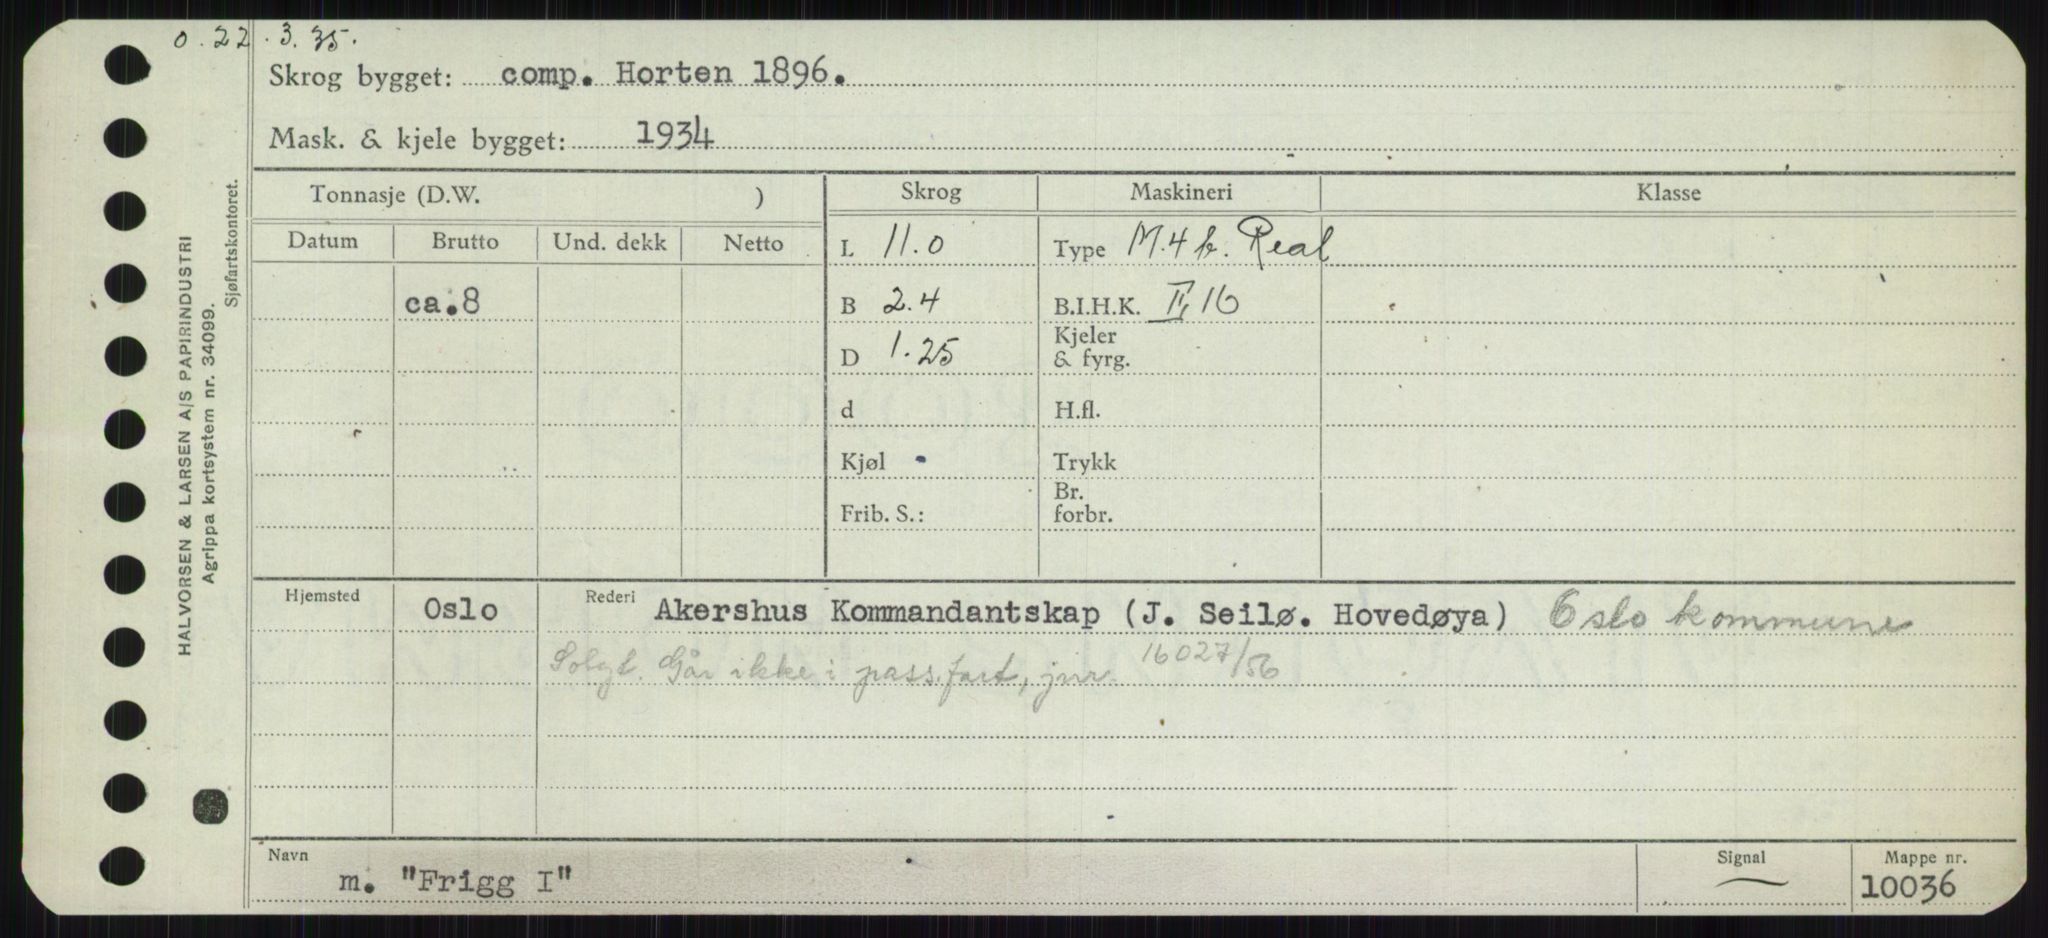 O. 22.3.35.
Skrog bygget: comp. Horten 1896.
Mask. & kjele bygget: 1934
Tonnasje (D.W. ) Skrog Maskineri Klasse
Datum Brutto Und. dekk Netto
L 11.0 Type M.4 k. Real
ca.8 B 2.4 B.I.H.K. II, 16
D 1.25 Kjeler
& fyrg.
d H.fl.
Kjøl Trykk
Frib. S.: Br.
forbr.
Hjemsted Oslo Rederi Akershus Kommandantskap (J. Seilø. Hovedøya) Oslo kommune
Solgt. Går ikke i pass.fart, jnr. 16027/56
Navn m. "Frigg I" Signal — Mappe nr. 10036
HALVORSEN & LARSEN A/S PAPIRINDUSTRI
Agrippa kortsystem nr. 34099.
Sjøfartskontoret.